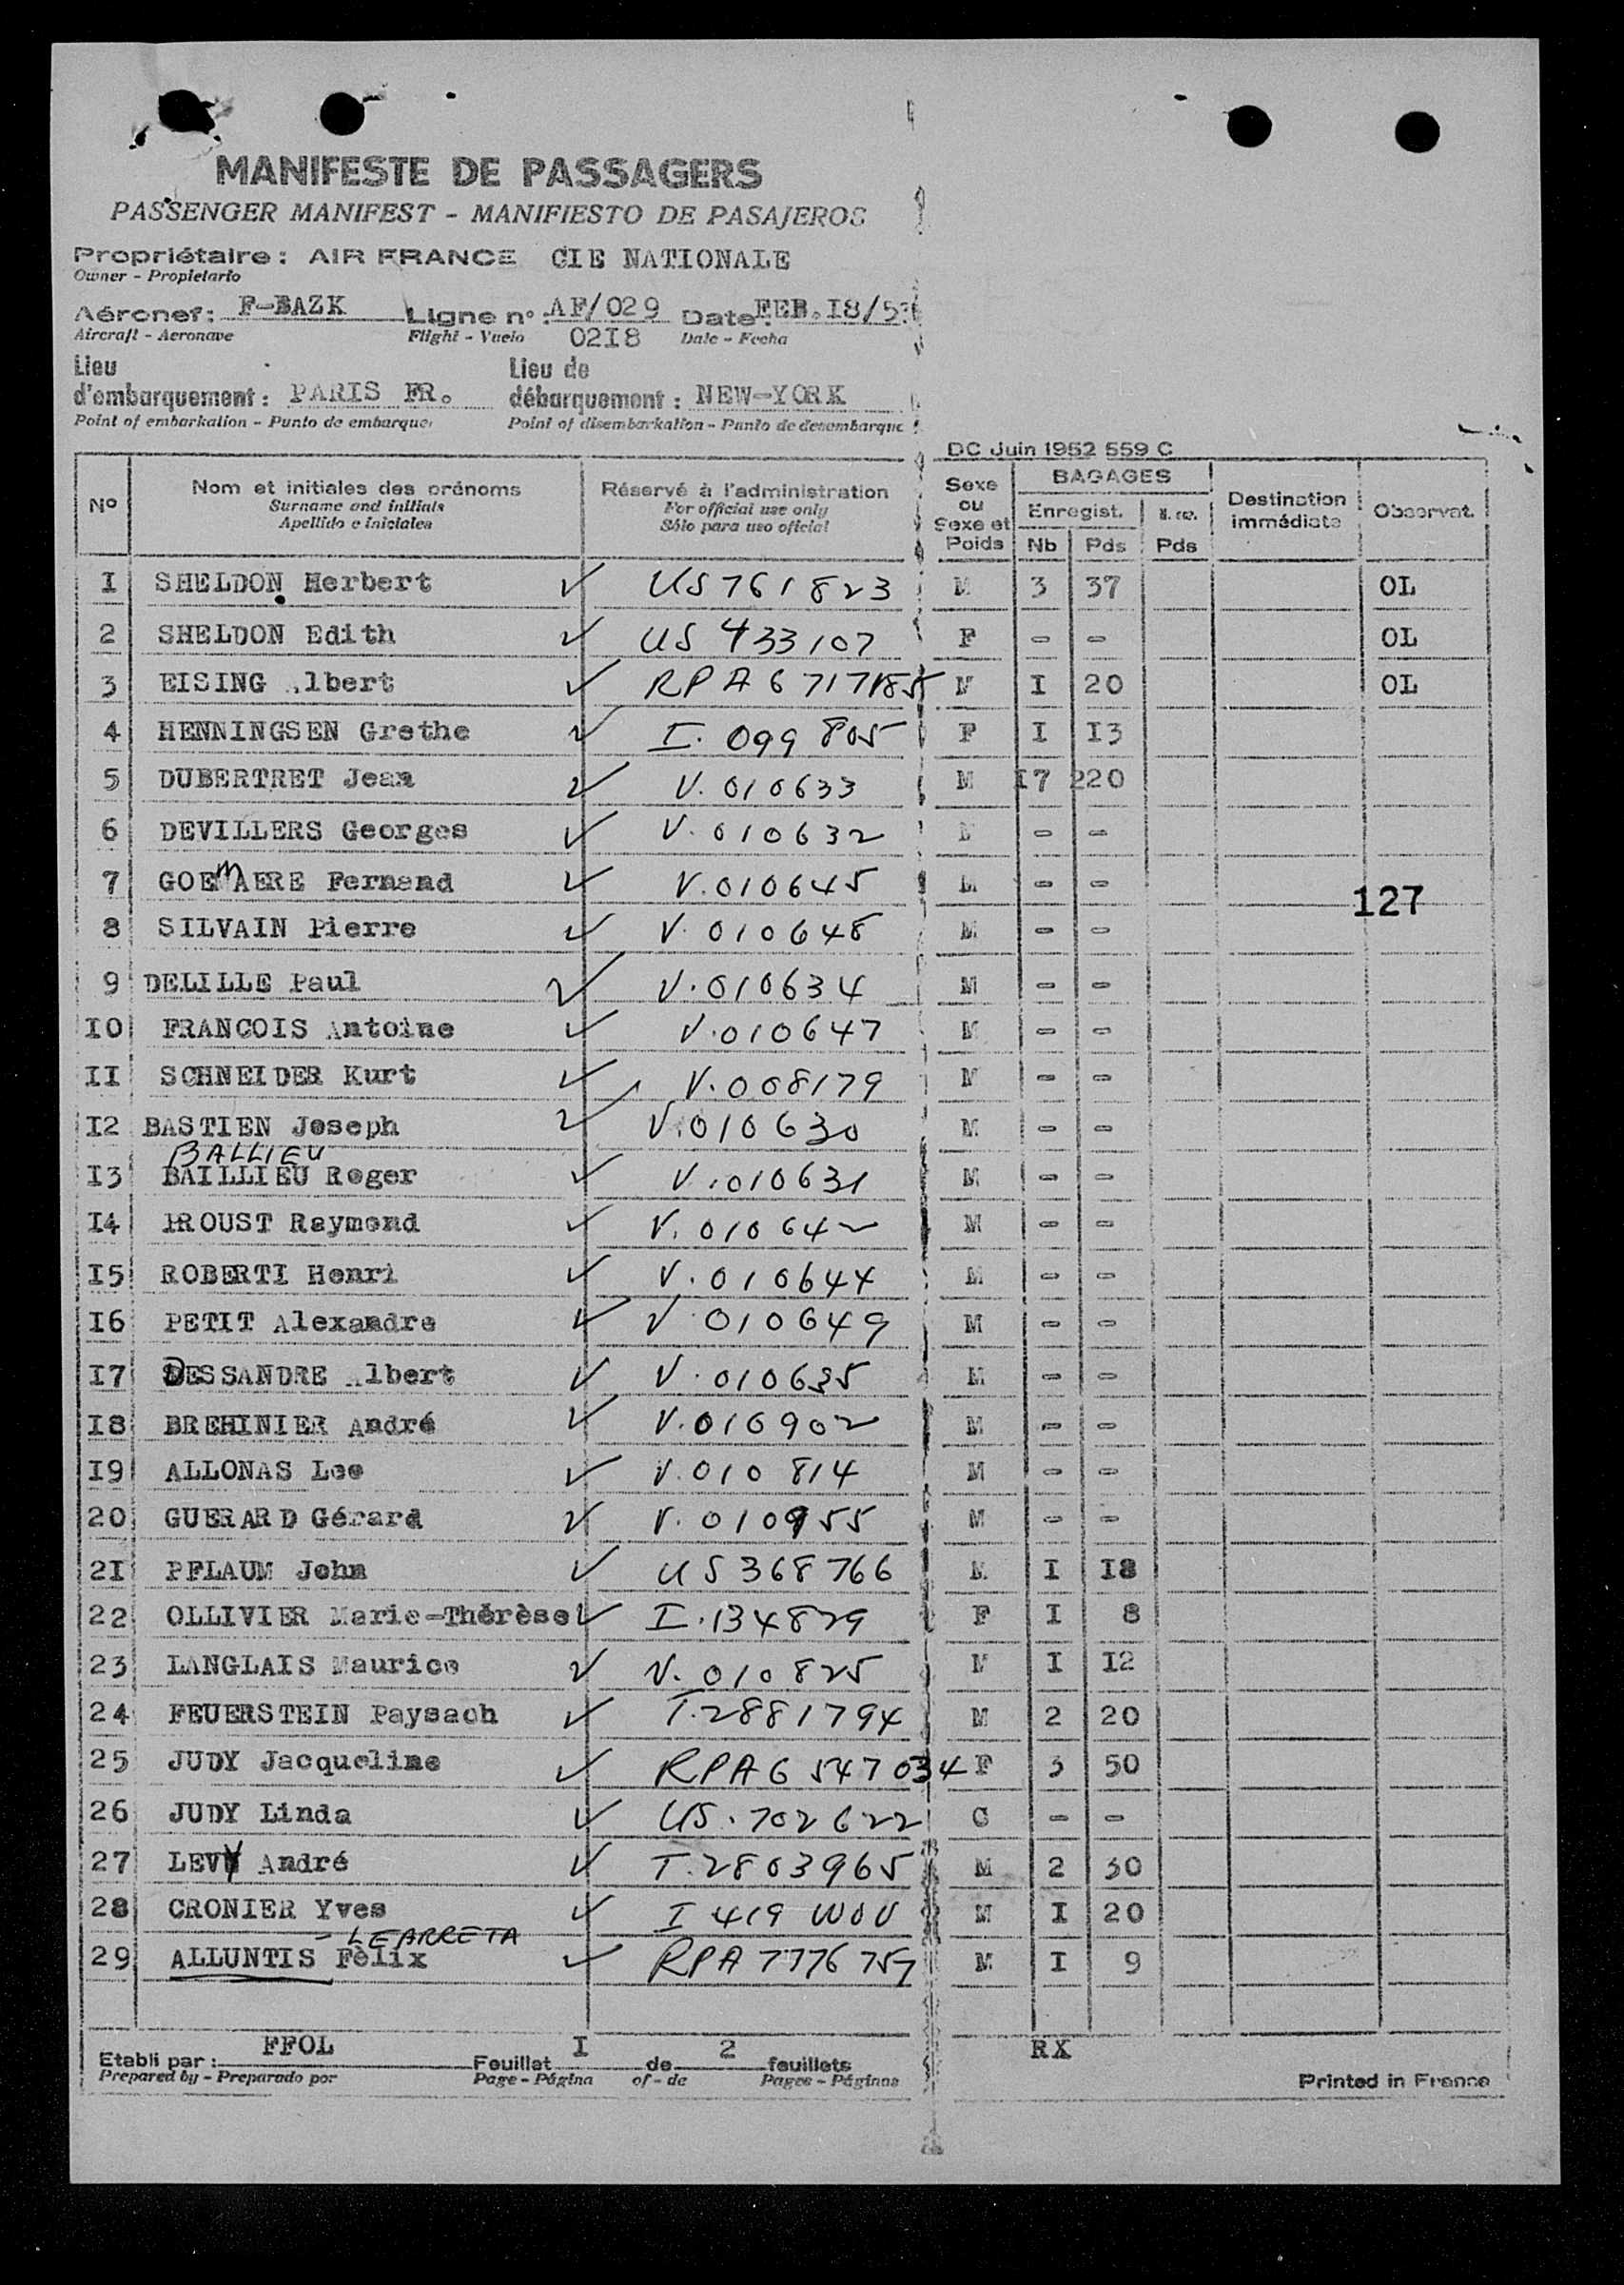 MANIFESTE DE PASSAGERS
PASSENGER MANIFEST - MANIFIESTO DE PASAJEROS
Propriétaire: AIR FRANCE CIE NATIONALE
Owner - Propietario
Aéronef: F-BAZK Ligne n°: AF/029 Date: FEB.I8/53
Aircraft - Aeronave Flight - Vuelo 02I8 Date - Fecha
Lieu d'embarquement: PARIS FR. Lieu de débarquement: NEW-YORK
Point of embarkation - Punto de embarque Point of disembarkation - Punto de desembarque
DC Juin 1952 559 C
N° Nom et initiales des prénoms Réservé à l'administration Sexe ou Sexe et Poids BAGAGES Destination immédiate Observat.
Surname and initials For official use only Enregist.
Apellido e iniciales Sólo para uso oficial Nb Pds Pds
I SHELDON Herbert ✓ US 761823 M 3 37 OL
2 SHELDON Edith ✓ US 433107 F - - OL
3 EISING Albert ✓ RPA 6717185 M I 20 OL
4 HENNINGSEN Grethe ✓ I. 099 805 F I I3
5 DUBERTRET Jean ✓ V. 010633 M I7 220
6 DEVILLERS Georges ✓ V. 010632 M - -
7 GOEMAERE Fernand ✓ V. 010645 M - -
127
8 SILVAIN Pierre ✓ V. 010648 M - -
9 DELILLE Paul ✓ V. 010634 M - -
I0 FRANCOIS Antoine ✓ V. 010647 M - -
II SCHNEIDER Kurt ✓ V. 008179 M - -
I2 BASTIEN Joseph ✓ V. 010630 M - -
BALLIEU
I3 BAILLIEU Roger ✓ V. 010631 M - -
I4 PROUST Raymond ✓ V. 010642 M - -
I5 ROBERTI Henri ✓ V. 010644 M - -
I6 PETIT Alexandre ✓ V 010649 M - -
I7 DESSANDRE Albert ✓ V. 010635 M - -
I8 BREHINIER André ✓ V. 010902 M - -
I9 ALLONAS Lee ✓ V. 010 814 M - -
20 GUERARD Gérard ✓ V. 010955 M - -
2I PFLAUM John ✓ US 368766 M I I8
22 OLLIVIER Marie-Thérèse ✓ I. 134829 F I 8
23 LANGLAIS Maurice ✓ V. 010825 M I I2
24 FEUERSTEIN Paysach ✓ T. 2881794 M 2 20
25 JUDY Jacqueline ✓ RPA 6547034 F 3 50
26 JUDY Linda ✓ US. 702622 C - -
27 LEVY André ✓ T. 2803965 M 2 30
28 CRONIER Yves ✓ I 419 WOU M I 20
- LEARRETA
29 ALLUNTIS Félix ✓ RPA 7776757 M I 9
Etabli par: FFOL Feuillet I de 2 feuillets RX
Prepared by - Preparado por Page - Página of - de Pages - Páginas Printed in France